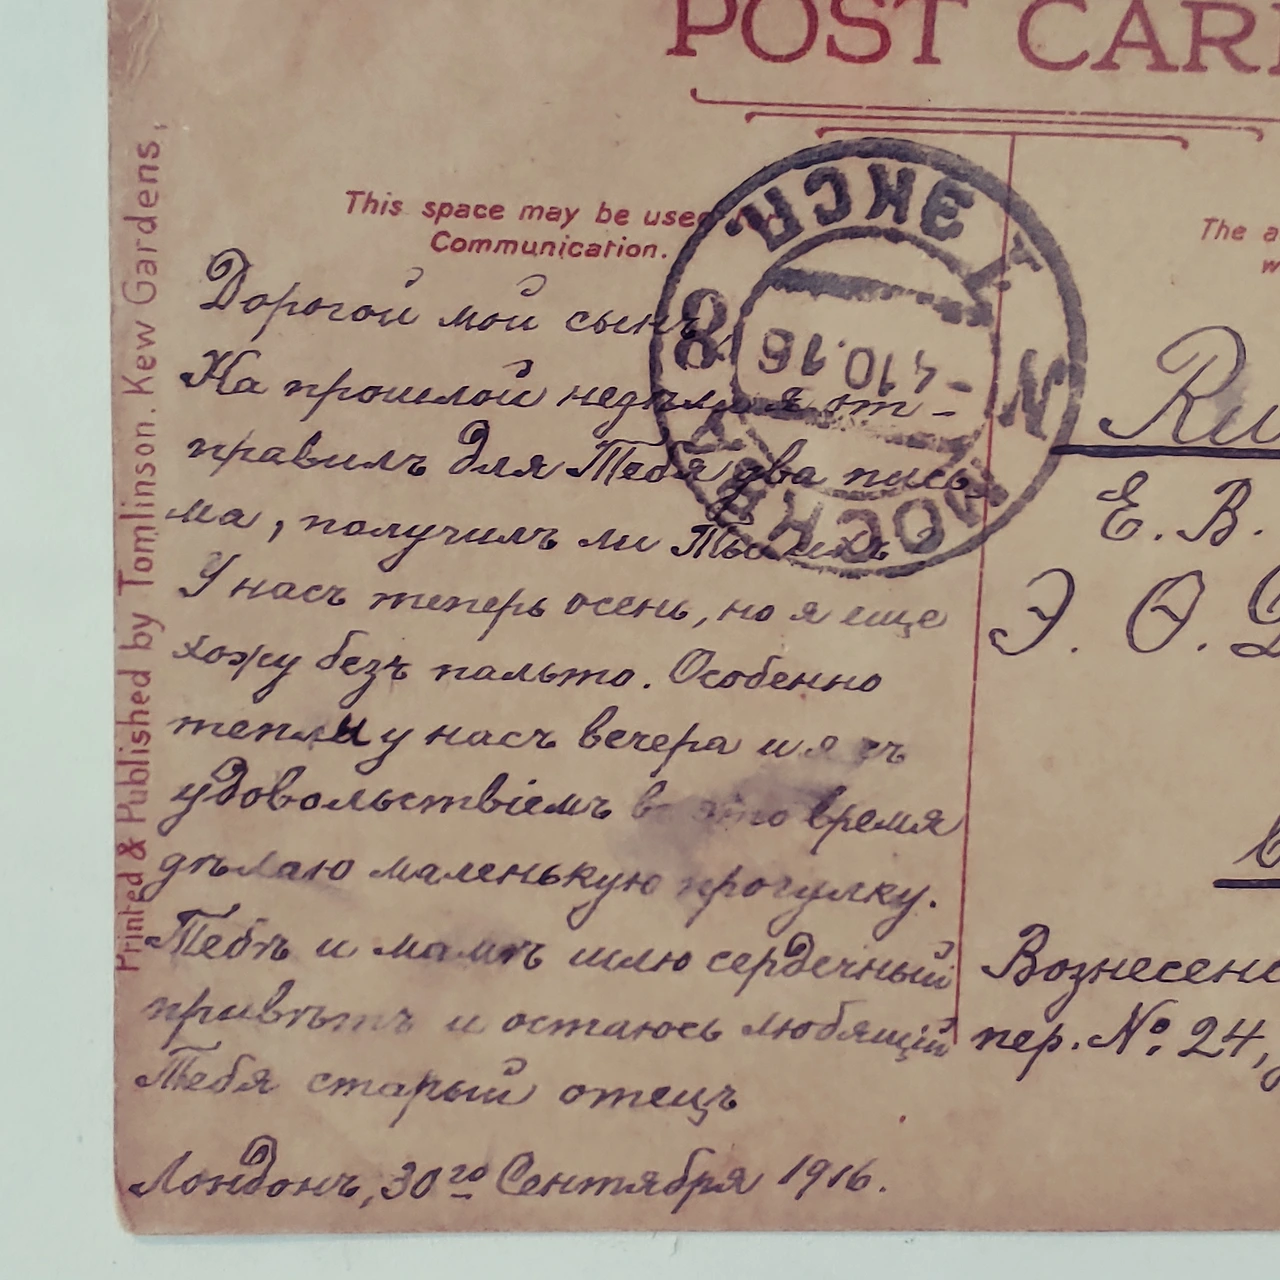 POST CAR
This space may be used
Communication.
The a
w
Дорогой мой сынъ,
На прошлой недѣлѣ я от-
правилъ для Тебя два пись-
ма, получилъ ли Ты ихъ?
У насъ теперь осень, но я еще
хожу безъ пальто. Особенно
теплы у насъ вечера и я съ
удовольствіемъ въ это время
дѣлаю маленькую прогулку.
Тебѣ и мамѣ шлю сердечный
привѣтъ и остаюсь любящій
Тебя старый отецъ
Лондонъ, 30го Сентября 1916.
Ru
Е. В.
Э. О. Д
Вознесенс
пер. № 24,
МОСКВА
8
-4.10.16
ЭКСП.
Printed & Published by Tomlinson. Kew Gardens,